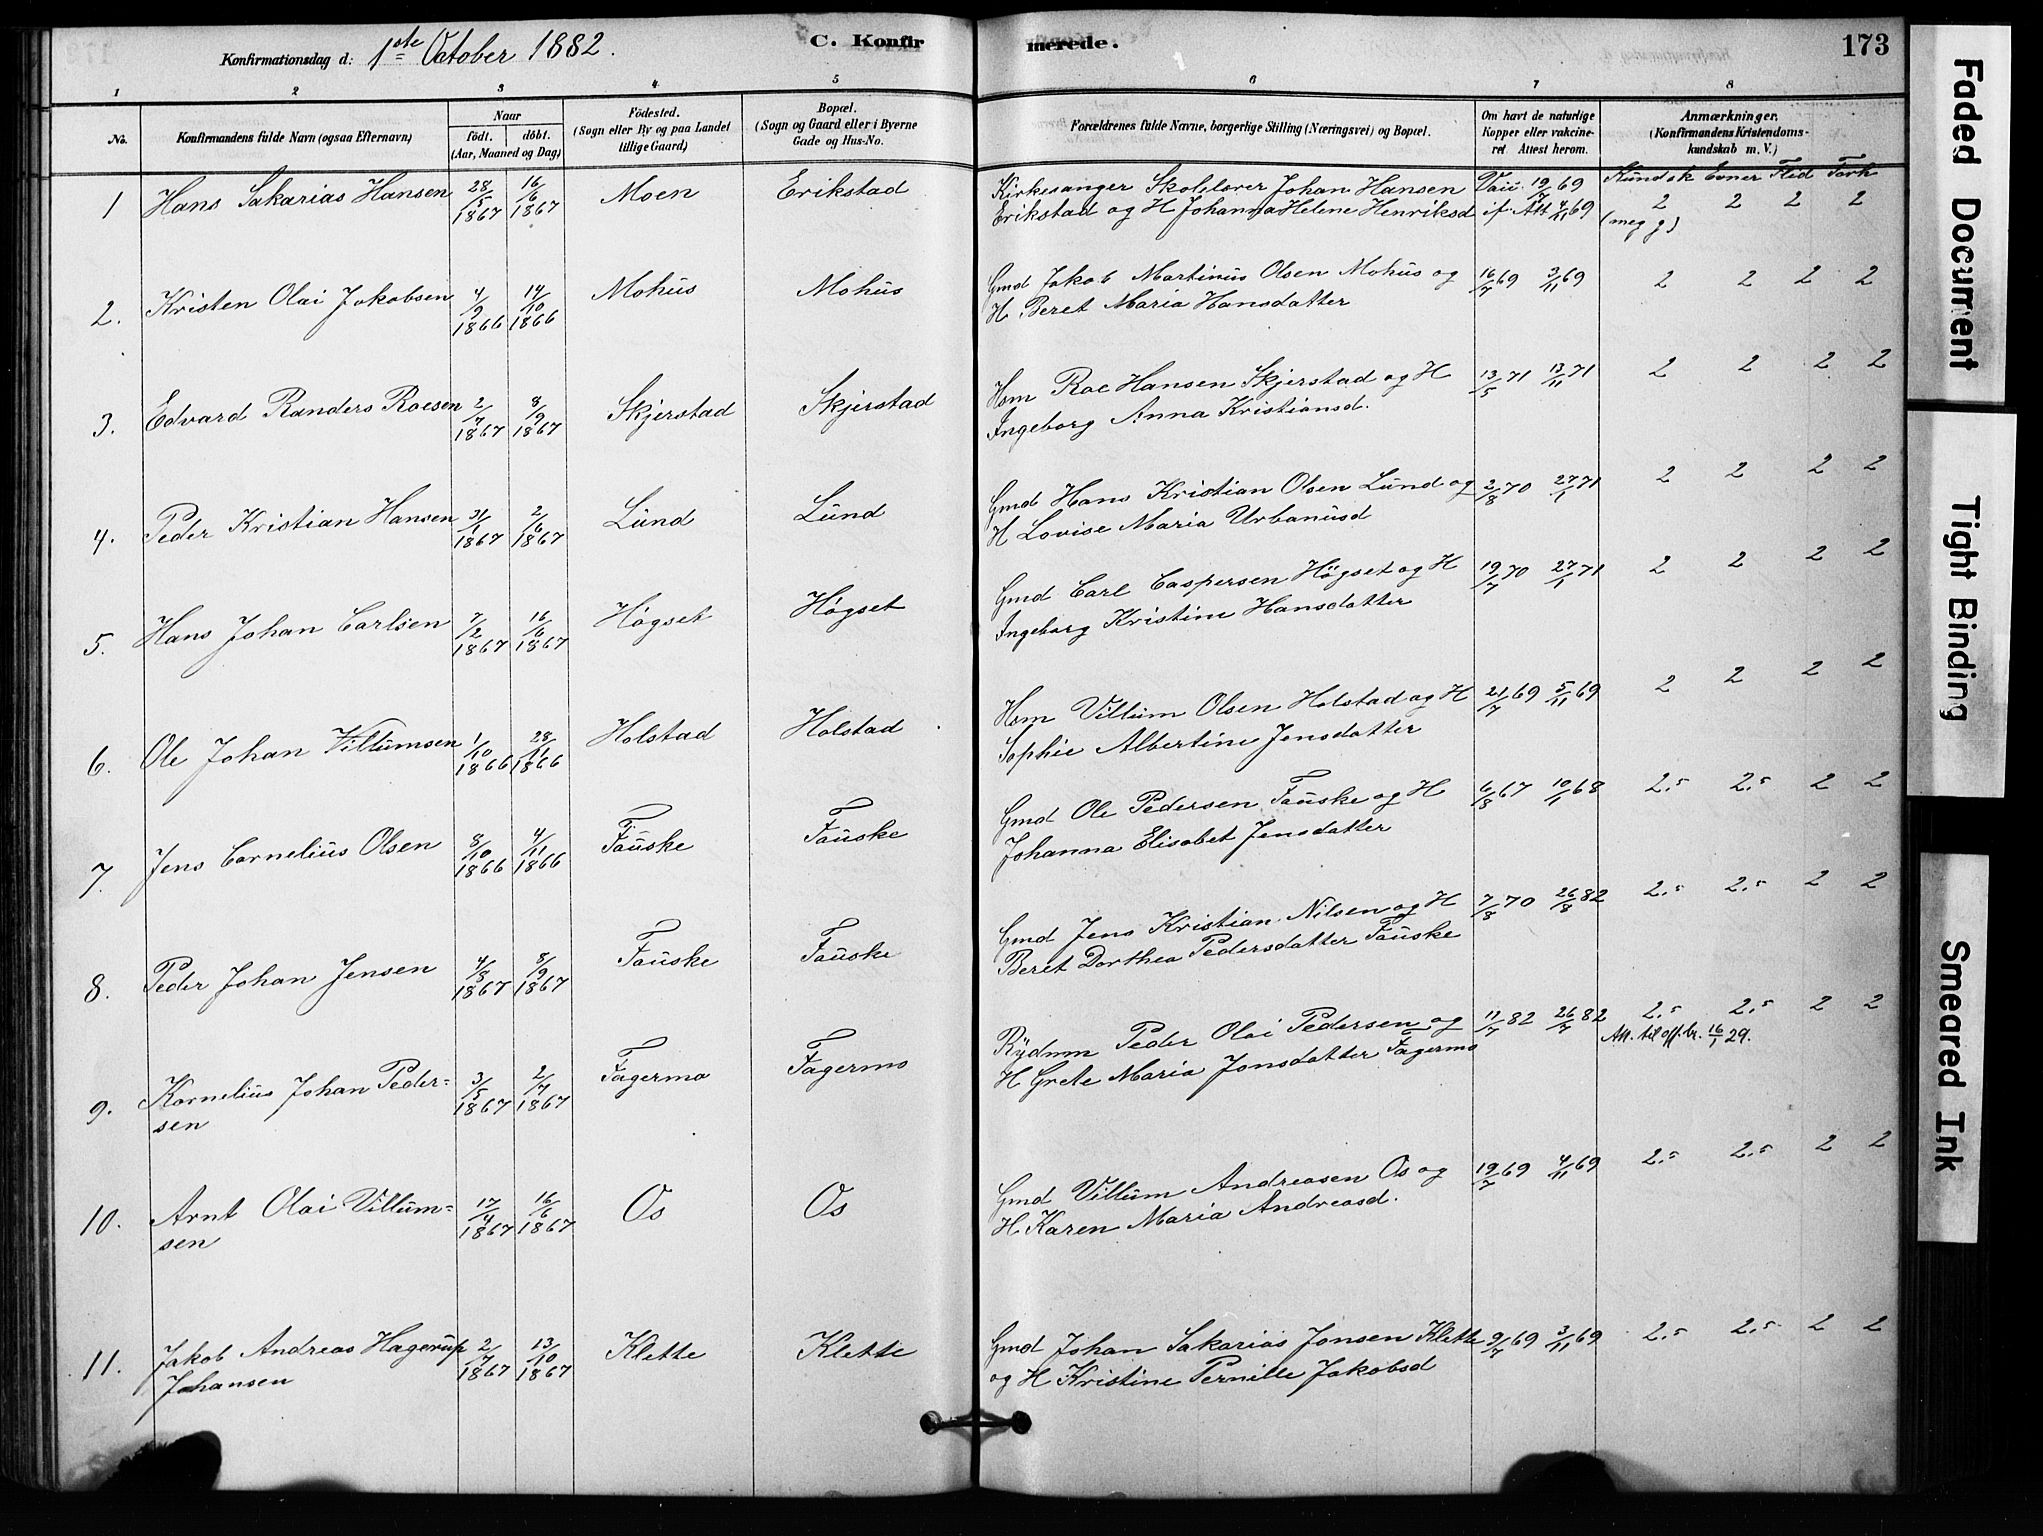 Konfirmationsdag d: 1ste October 1882.
C. Konfirmerede.
173
1 2 3 4 5 6 7 8
No.
Konfirmandens fulde Navn (ogsaa Efternavn)
Naar
födt. döbt.
(Aar, Maaned og Dag)
Födested.
(Sogn eller By og paa Landet
tillige Gaard)
Bopæl.
(Sogn og Gaard eller i Byerne
Gade og Hus-No.
Forældrenes fulde Navne, borgerlige Stilling (Næringsvei) og Bopæl.
Om havt de naturlige
Kopper eller vakcine-
ret. Attest herom.
Anmærkninger.
(Konfirmandens Kristendoms-
kundskab m. V.)
Kundsk Evner Flid Forh
1 Hans Sakarias Hansen 28/5 1867 16/6 1867 Moen Erikstad Kirkesanger Skolelærer Johan Hansen Vacc. 19/7 69
Erikstad og H Johanna Helene Henriksd if. Att 4/11 69 2 2 2 2
(meg g)
2. Kristen Olai Jakobsen 4/9 1866 14/10 1866 Mohus Mohus Gmd Jakob Martinus Olsen Mohus og 16/7 69 3/11 69 2 2 2 2
H Beret Maria Hansdatter
3. Edvard Randers Roesen 2/7 1867 8/9 1867 Skjerstad Skjerstad Hsm Roe Hansen Skjerstad og H 13/5 71 13/11 71 2 2 2 2
Ingeborg Anna Kristiansd.
4. Peder Kristian Hansen 31/1 1867 2/6 1867 Lund Lund Gmd Hans Kristian Olsen Lund og 2/8 70 27/1 71 2 2 2 2
H Lovise Maria Urbanusd
5. Hans Johan Carlsen 7/2 1867 16/6 1867 Högset Högset Gmd Carl Caspersen Högset og H 19/7 70 27/1 71 2 2 2 2
Ingeborg Kristine Hansdatter
6. Ole Johan Villumsen 1/10 1866 28/11 1866 Holstad Holstad Hsm Villum Olsen Holstad og H 21/7 69 5/11 69 2 2 2 2
Sophie Albertine Jensdatter
7. Jens Cornelius Olsen 8/10 1866 4/11 1866 Fauske Fauske Gmd Ole Pedersen Fauske og H 6/8 67 10/1 68 2.5 2.5 2 2
Johanna Elisabet Jensdatter
8. Peder Johan Jensen 4/8 1867 8/9 1867 Fauske Fauske Gmd Jens Kristian Nilsen og H 7/8 70 26/8 82 2.5 2.5 2 2
Beret Dorthea Pedersdatter Fauske
9. Kornelius Johan Peder= 3/5 1867 2/7 1867 Fagermo Fagermo Rydnm Peder Olai Pedersen og 11/7 82 26/7 82 2.5 2.5 2 2
sen H Grete Maria Jonsdatter Fagermo Att. til off. br. 16/1 29.
10. Arnt Olai Villum= 17/4 1867 16/6 1867 Os Os Gmd Villum Andreasen Os og 19/7 69 4/11 69 2.5 2.5 2 2
sen H Karen Maria Andreasd.
11. Jakob Andreas Hagerup 2/7 1867 13/10 1867 Klette Klette Gmd Johan Sakarias Jonsen Klette 9/7 69 3/11 69 2.5 2.5 2 2
Johansen og H Kristine Pernille Jakobsd
Faded Document
Tight Binding
Smeared Ink